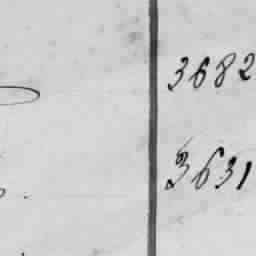 3682
3631